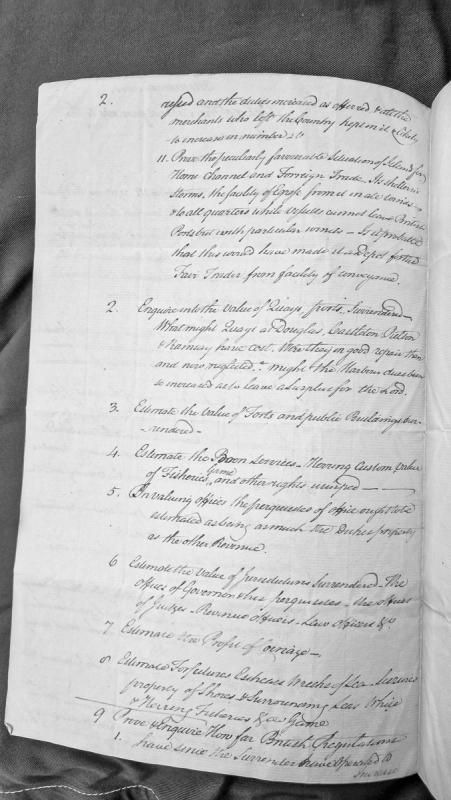 2. refused and the duties increased as offered & at the
merchants who left the Country kept on it &
to increase in number &c
11. Prove the peculiarly favourable Situation of Island for
Home channel and Foreign Trade. Its shelter in
Storms, the facility of Egress from it in all winds
& to all quarters while Vessels cannot leave British
Ports but with particular winds – Is it probable
that this would have made it a depot for the
Fair Trader from facility of conveyance.
2. Enquire into the Value of Quays, ports, Surrendered
What might Quays at Douglas, Castleton Peeltown
& Ramsey have cost. Were they in good repair then
and now neglected. might the Harbour dues been
so increased as to leave a Surplus for the Lord.
3. Estimate the Value of Forts and public Buildings Sur-
-rendered –
4. Estimate the Boon Services – Herring Custom Value
of Fisheries, Game and other rights usurped
5. In valuing offices the perquisites of office ought to be
estimated as being as much the Dukes property
as the other Revenue.
6 Estimate the Value of Jurisdictions Surrendered – The
offices of Governor & his perquisites – the offices
of Judges – Revenue officers – Law officers &c
7 Estimate the Profit of Coinage –
8 Estimate Forfeitures Escheats Wrecks of Sea
property of Shores & Surrounding Seas White
& Herring Fisheries &ca Game
9 Prove & Enquire How far British Regulations
1. have since the Surrender have operated to
increase